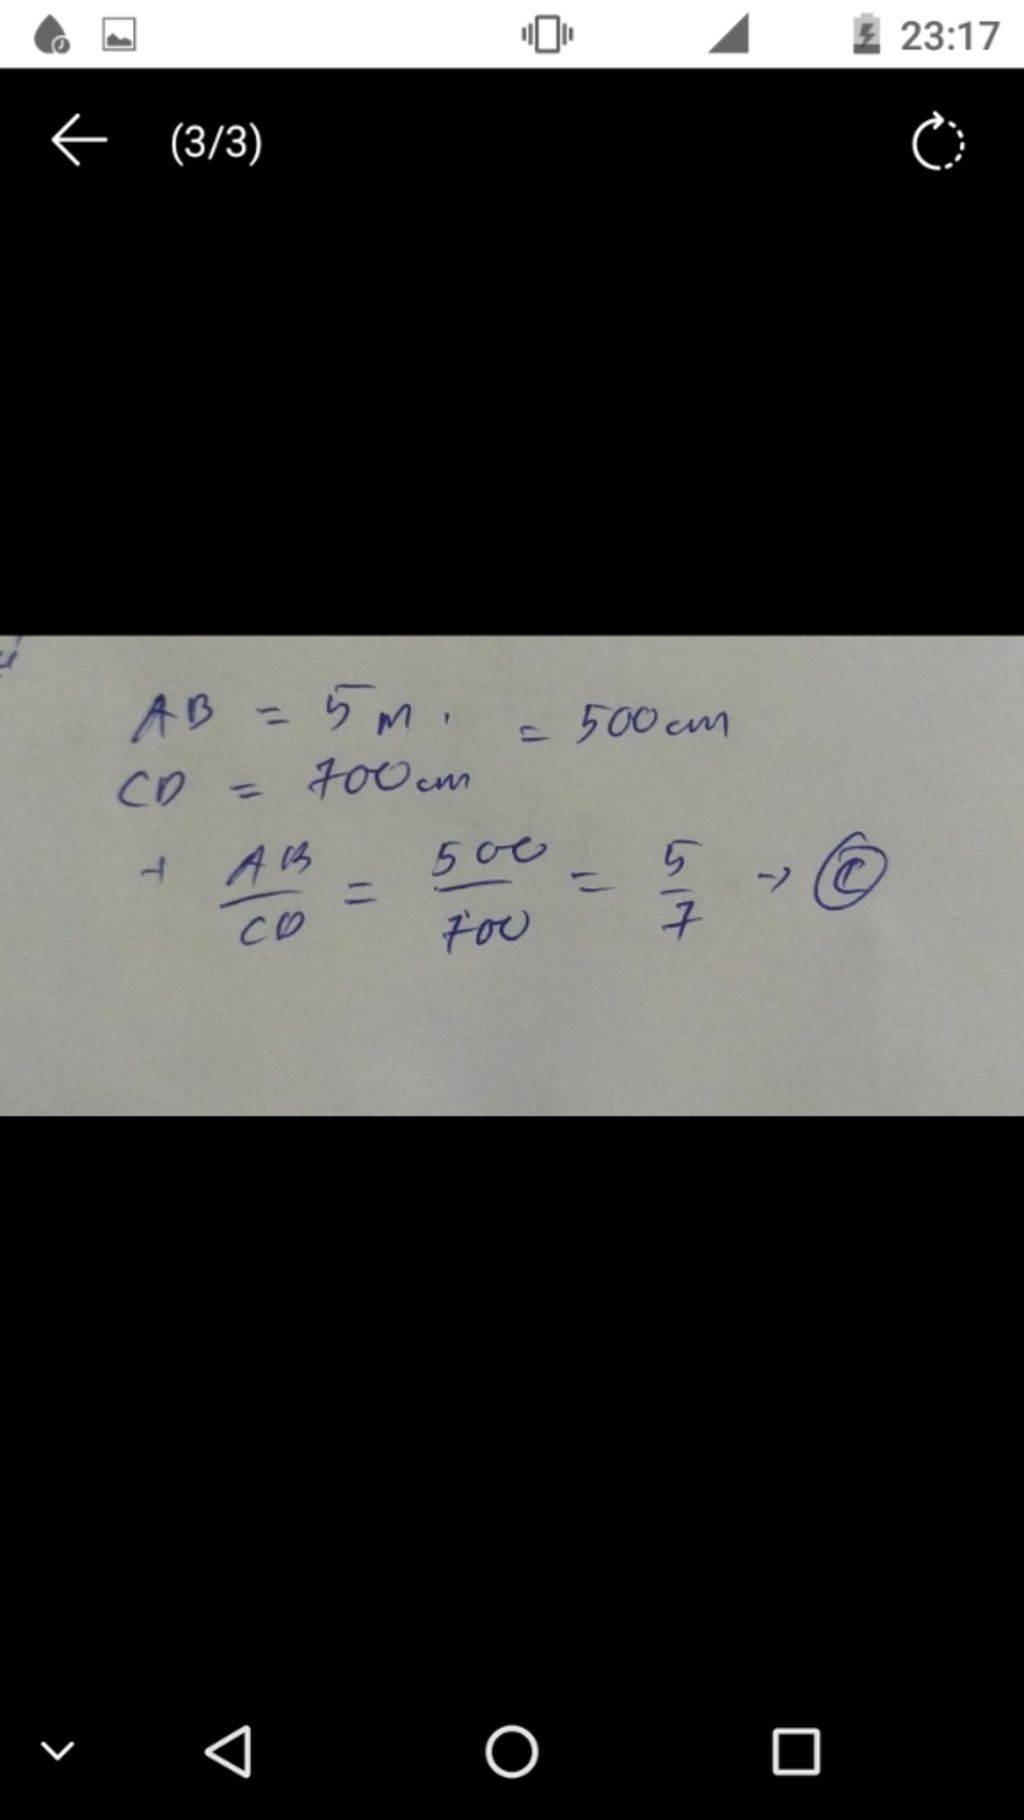 23:17
(3/3)
AB = 5m. = 500cm
CD = 700cm
+ AB/CD = 500/700 = 5/7 → C